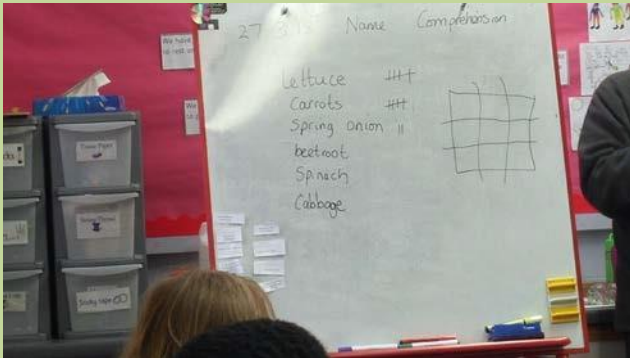 Name Comprehension
Lettuce
Carrots
Spring onion
beetroot
Spinach
Cabbage
We have
Tissue Paper
Sticky tape